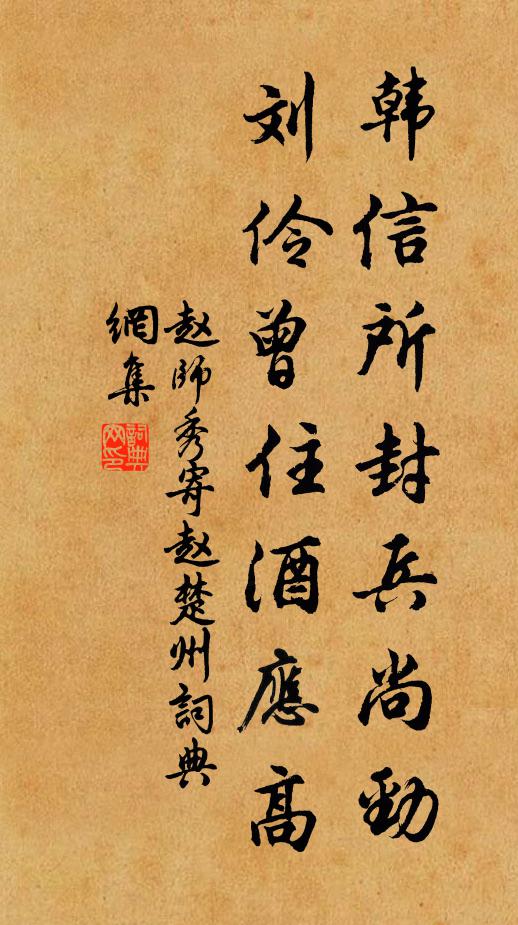 韩信所封兵尚勁
刘伶曾住酒應高
赵師秀寄赵楚州詞典
網集
詞典
网印